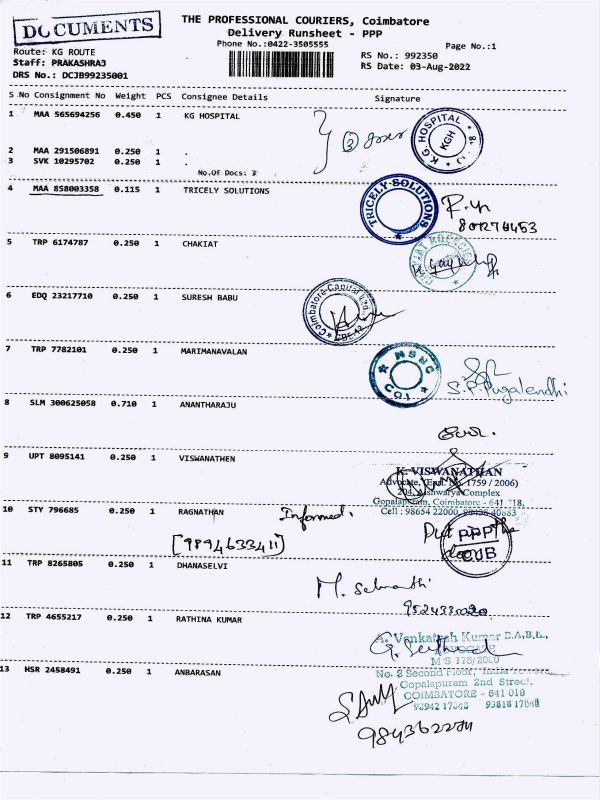 DOCUMENTS
THE PROFESSIONAL COURIERS, Coimbatore
Delivery Runsheet - PPP
Phone No.:0422-3505555
Page No.:1
Route: KG ROUTE
Staff: PRAKASHRAJ
DRS No.: DCJB99235001
RS No.: 992350
RS Date: 03-Aug-2022
S No Consignment No Weight PCS Consignee Details Signature
1 MAA 565694256 0.450 1 KG HOSPITAL
K G HOSPITAL
KGH
2 MAA 291506891 0.250 1 .
3 SVK 10295702 0.250 1 .
No.Of Docs: 3
4 MAA 858003358 0.115 1 TRICELY SOLUTIONS
TRICELY SOLUTIONS
5 TRP 6174787 0.250 1 CHAKIAT
6 EDQ 23217710 0.250 1 SURESH BABU
Coimbatore Capital Ltd.
CBE-12
7 TRP 7782101 0.250 1 MARIMANAVALAN
S.P. Pugalendhi
8 SLM 300625058 0.710 1 ANANTHARAJU
9 UPT 8095141 0.250 1 VISWANATHEN
K. VISWANATHAN
Advocate, 1759 / 2006)
204, Aishwarya Complex
Gopalapuram, Coimbatore - 641 018.
Cell : 98654 22000,
10 STY 796685 0.250 1 RAGNATHAN
Informed.
[9894633411]
Put the
door
PPP
11 TRP 8265805 0.250 1 DHANASELVI
12 TRP 4655217 0.250 1 RATHINA KUMAR
A. Venkatesh Kumar B.A,B.L.,
MS 175/2000
No. 2 Second Floor,
Gopalapuram 2nd Street,
COIMBATORE - 641 018
98942 17848 93818 17848
13 HSR 2458491 0.250 1 ANBARASAN